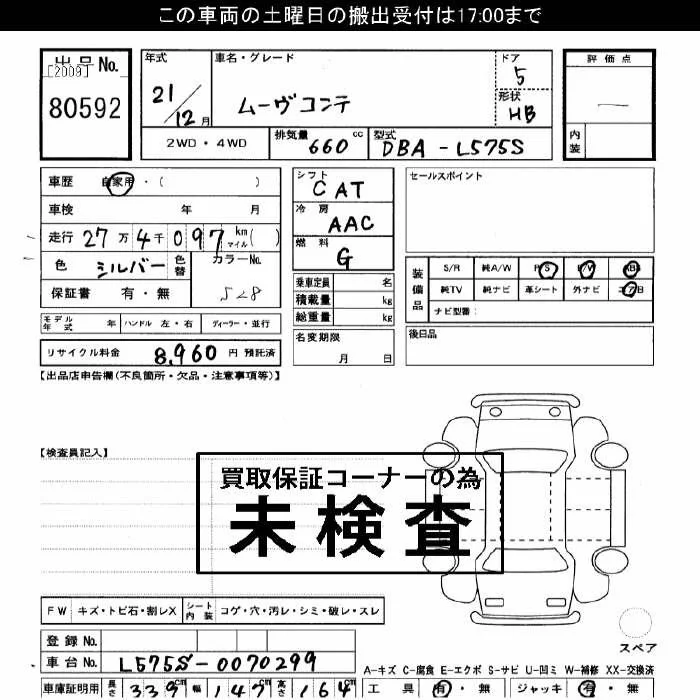 この車両の土曜日の搬出受付は17:00まで
出品No.
[2009]
80592
年式
21/12月
車名・グレード
ムーヴコンテ
ドア
5
形状
HB
評価点
―
内装
2WD・4WD
排気量 660 cc
型式 DBA-L575S
車歴 自家用・( )
車検 年 月
走行 27万4千097 km マイル( )
色 シルバー 色替 カラーNo.
S28
保証書 有・無
モデル年式 年 ハンドル 左・右 ディーラー・並行
リサイクル料金 8,960 円 預託済
シフト
CAT
冷房
AAC
燃料
G
乗車定員 名
積載量 kg
総重量 kg
名変期限
月 日
セールスポイント
装備品
S/R 純A/W P/S P/W ABS
純TV 純ナビ 革シート 外ナビ エアB
ナビ型番:
後日品
【出品店申告欄(不良箇所・欠品・注意事項等)】
【検査員記入】
買取保証コーナーの為
未検査
FW キズ・トビ石・割レX シート内装 コゲ・穴・汚レ・シミ・破レ・スレ
スペア
登録No.
車台No. L575S-0070299
A-キズ C-腐食 E-エクボ S-サビ U-凹ミ W-補修 XX-交換済
車庫証明用 長さ 339cm 幅 147cm 高さ 164cm
工具 有・無 ジャッキ 有・無